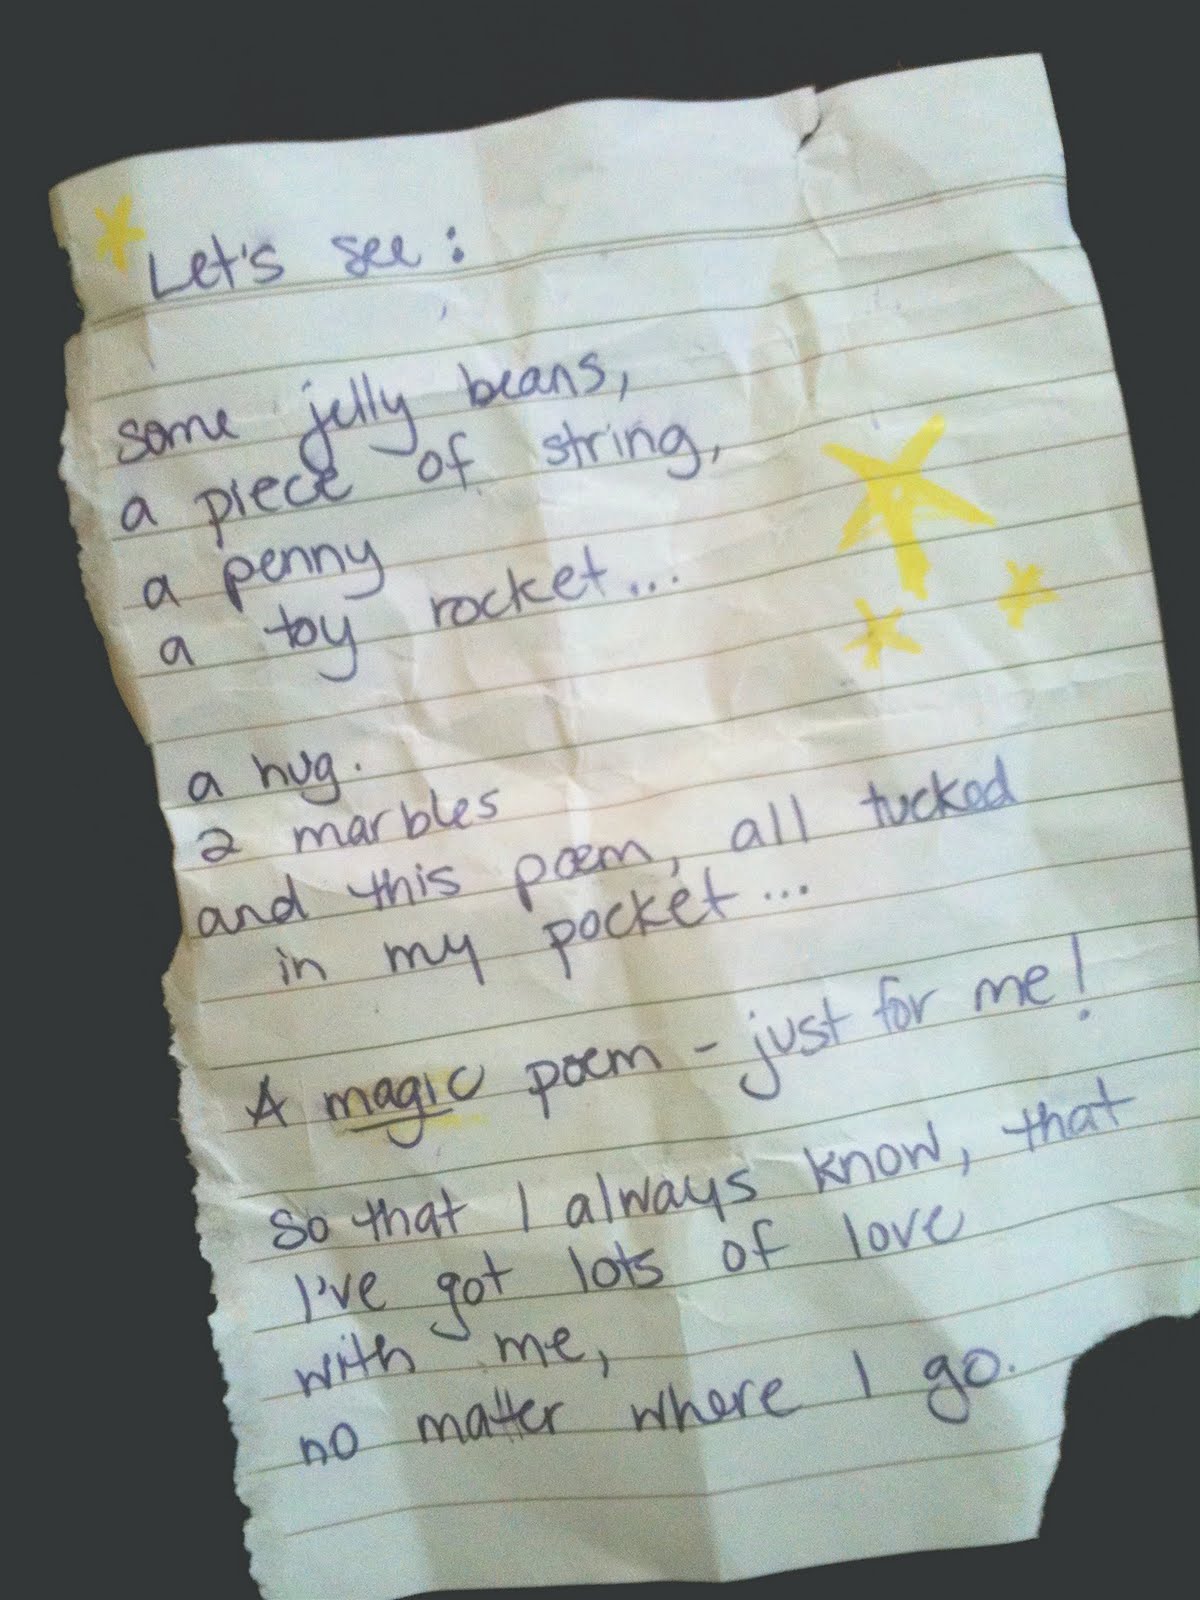 Let's see:
some jelly beans,
a piece of string,
a penny
a toy rocket...
a hug.
2 marbles
and this poem, all tucked
in my pocket...
A magic poem - just for me!
So that I always know, that
I've got lots of love
with me,
no matter where I go.